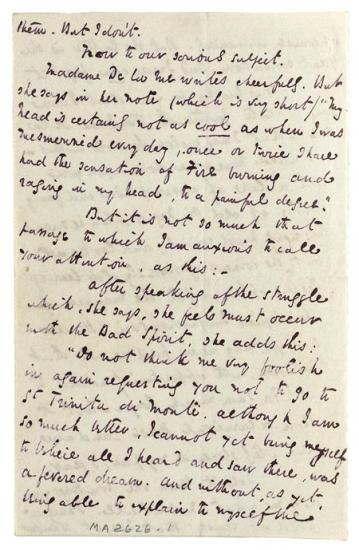 them. But I don't.
Now to our serious subject.
Madame De la Rue writes cheerfully. But
she says in her note (which is very short) "My
head is certainly not as cool as when I was
mesmerised every day, once or twice I have
had the sensation of Fire burning and
raging in my head, to a painful degree."
But it is not so much that
passage to which I am anxious to call
your attention, as this:-
After speaking of the struggle
which, she says, she feels must occur
with the Bad Spirit, she adds this:
"Do not think me very foolish
in again requesting you not to go to
St Trinita di Monte. Although I am
so much better, I cannot yet bring myself
to believe all I heard and saw there, was
a fevered dream. And without, as yet,
being able to explain to myself the
MA2626.1